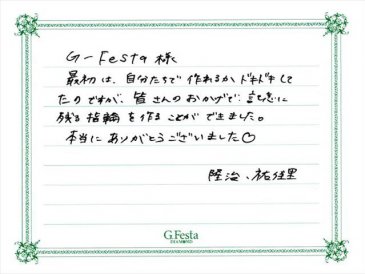 G-Festa 様
最初は、自分たちで作れるかドキドキして
たのですが、皆さんのおかげで記念に
残る指輪を作ることができました。
本当にありがとうございました♡
隆治、祐佳里
G.Festa
DIAMOND